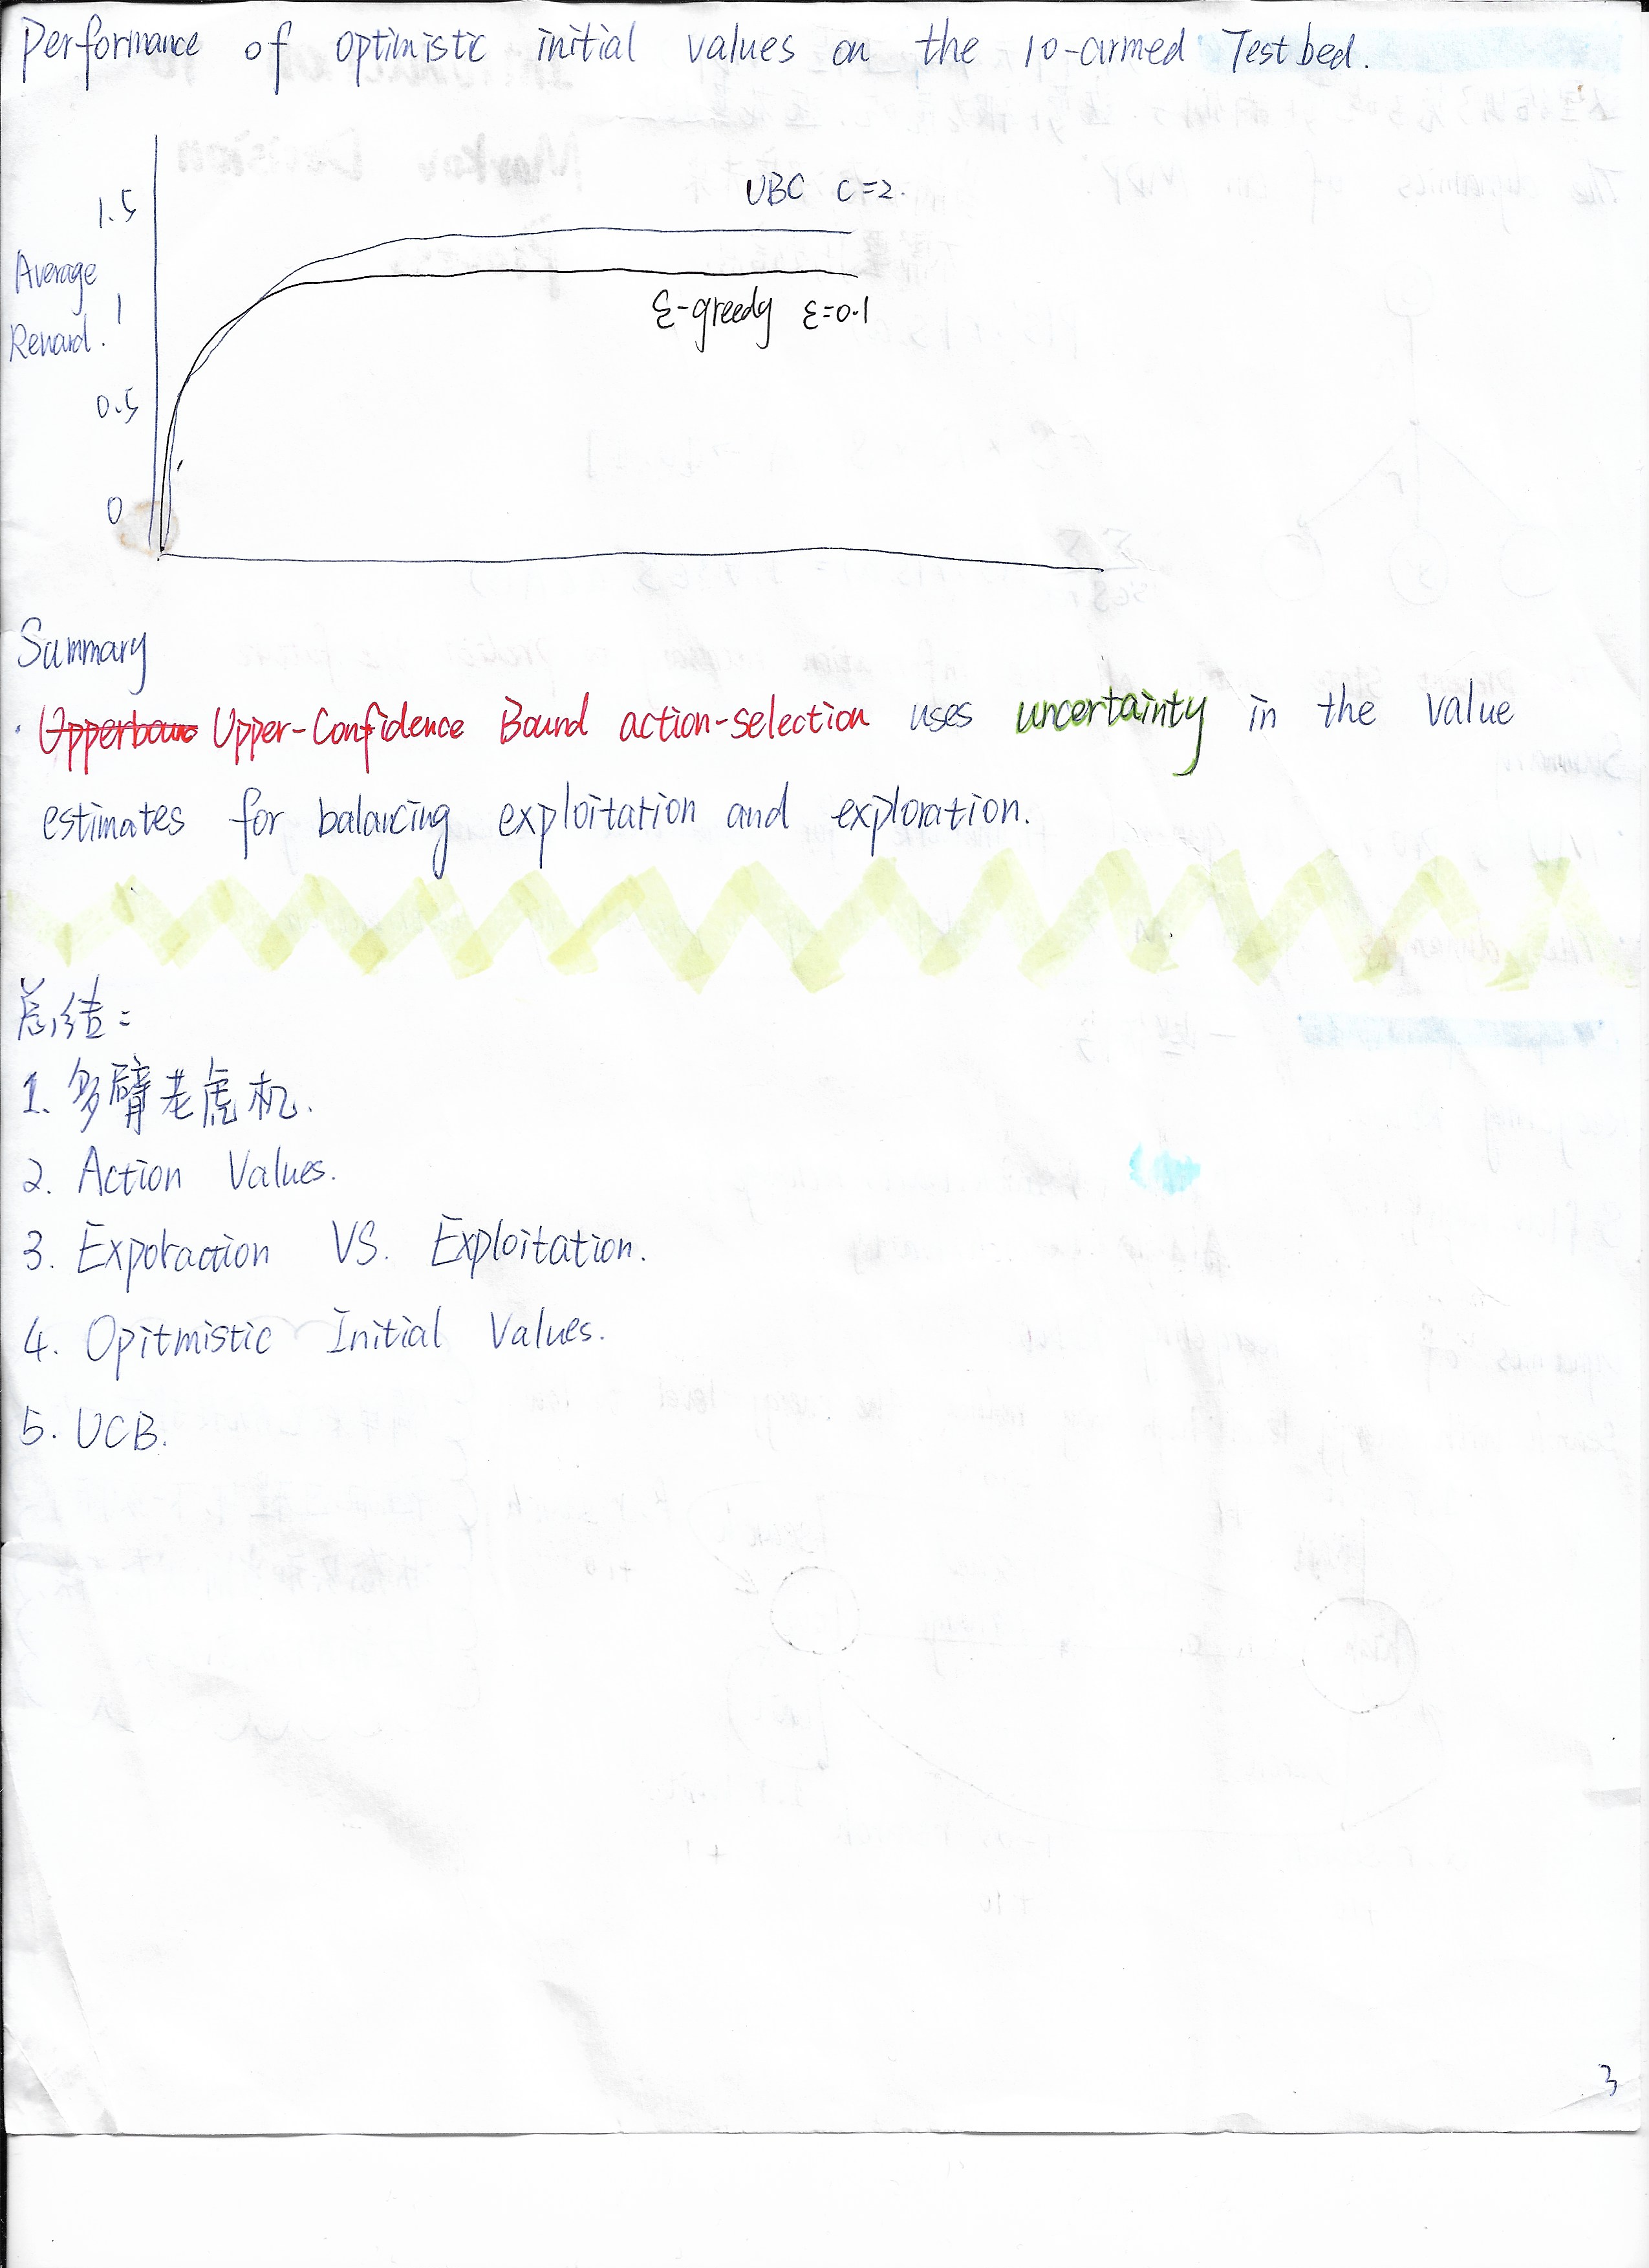 Performance of optimistic initial values on the 10-armed Testbed.
UBC C=2.
1.5
Average
1
Reward.
ε-greedy ε=0.1
0.5
0
Summary
· Upperboun Upper-Confidence Bound action-selection uses uncertainty in the value
estimates for balancing exploitation and exploration.
总结:
1. 多臂老虎机.
2. Action Values.
3. Expotaction VS. Exploitation.
4. Opitmistic Initial Values.
5. UCB.
3